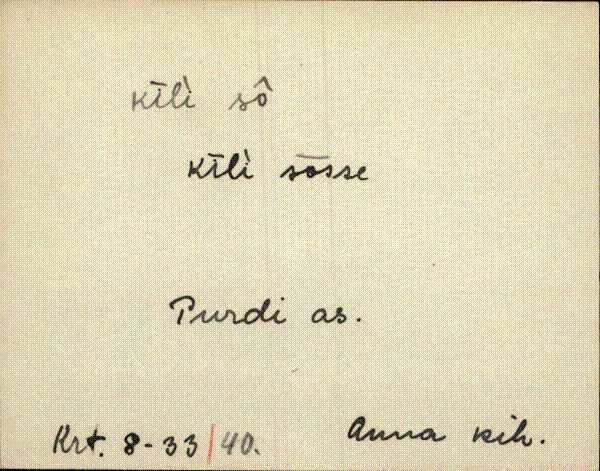 kīl̀i sô
kīl̀i sōsse
Purdi as.
Krt. 8-33/40. Anna kih.